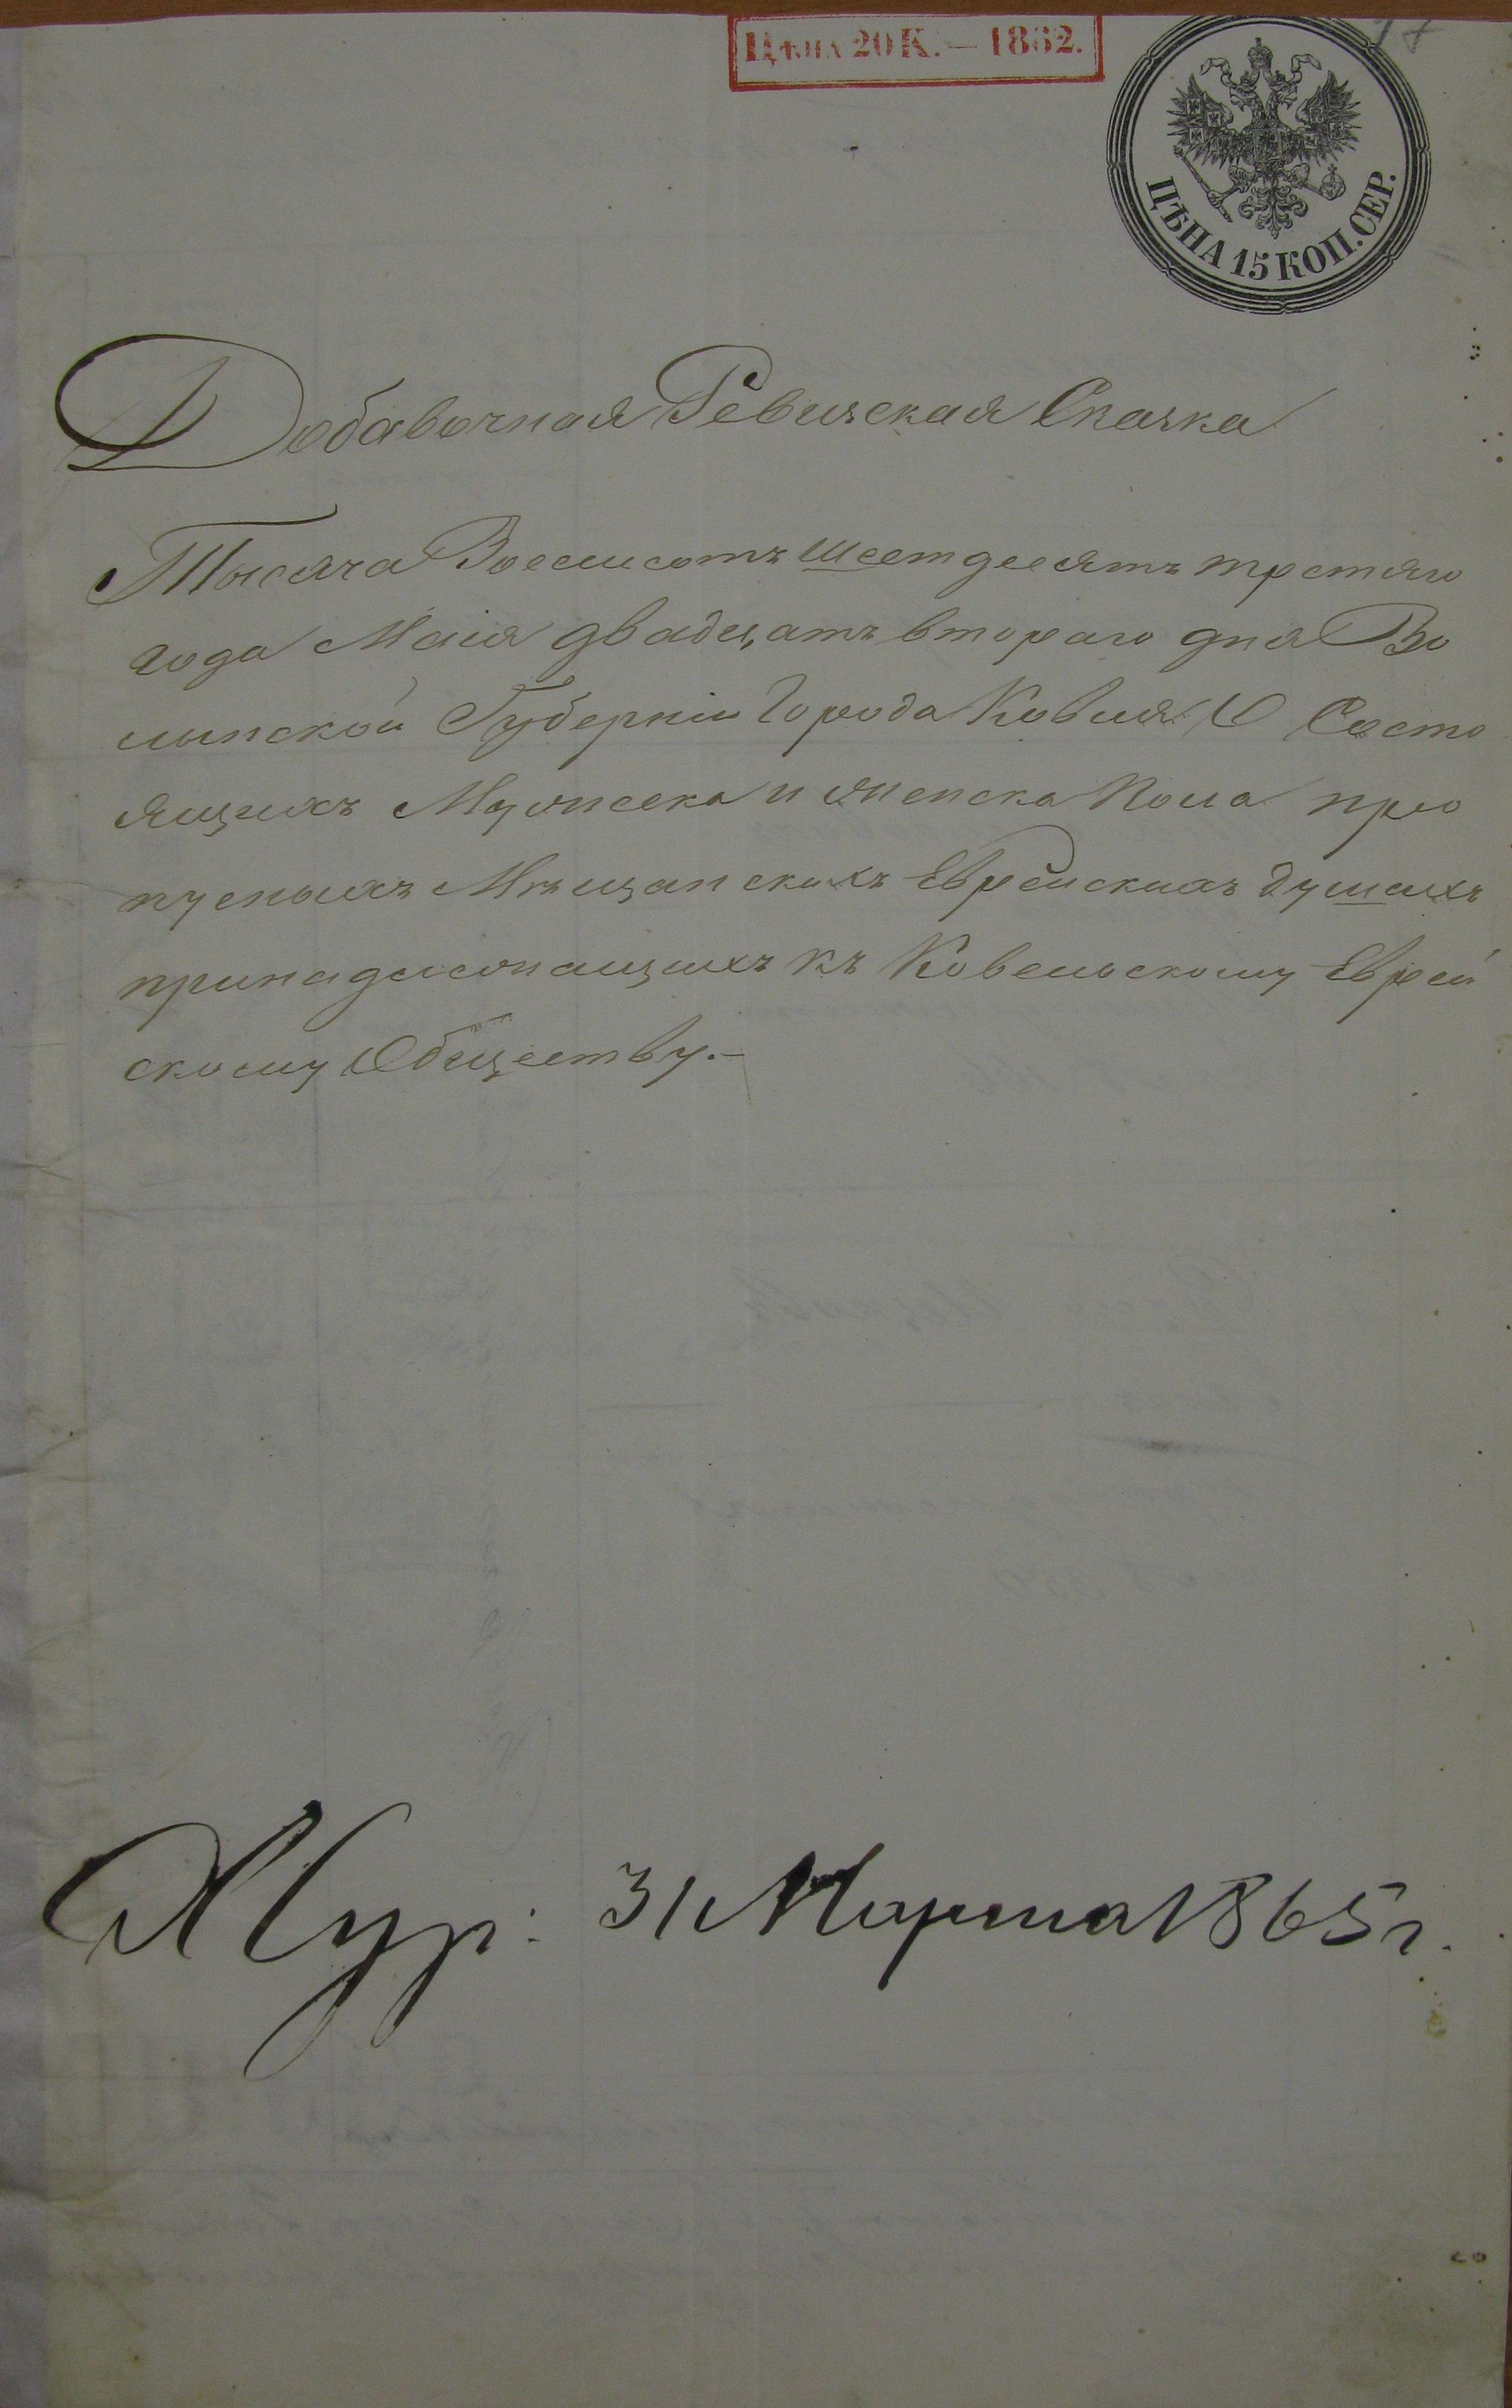 Цѣна 20 К. — 1862.
ЦѢНА 15 КОП. СЕР.
Добавочная Ревизская Сказка
Тысяча Восемсотъ шестдесятъ третяго
года Маія двадцатъ втораго дня Во
лынской Губерніи Города Ковля О Состо
ящихъ Мужеска и женска Пола про
пусныхъ Мѣщанскихъ Еврейскихъ душахъ
принадлежащихъ къ Ковельскому Еврей
скому Обществу.—
Жур: 31 Марта 1865 г.